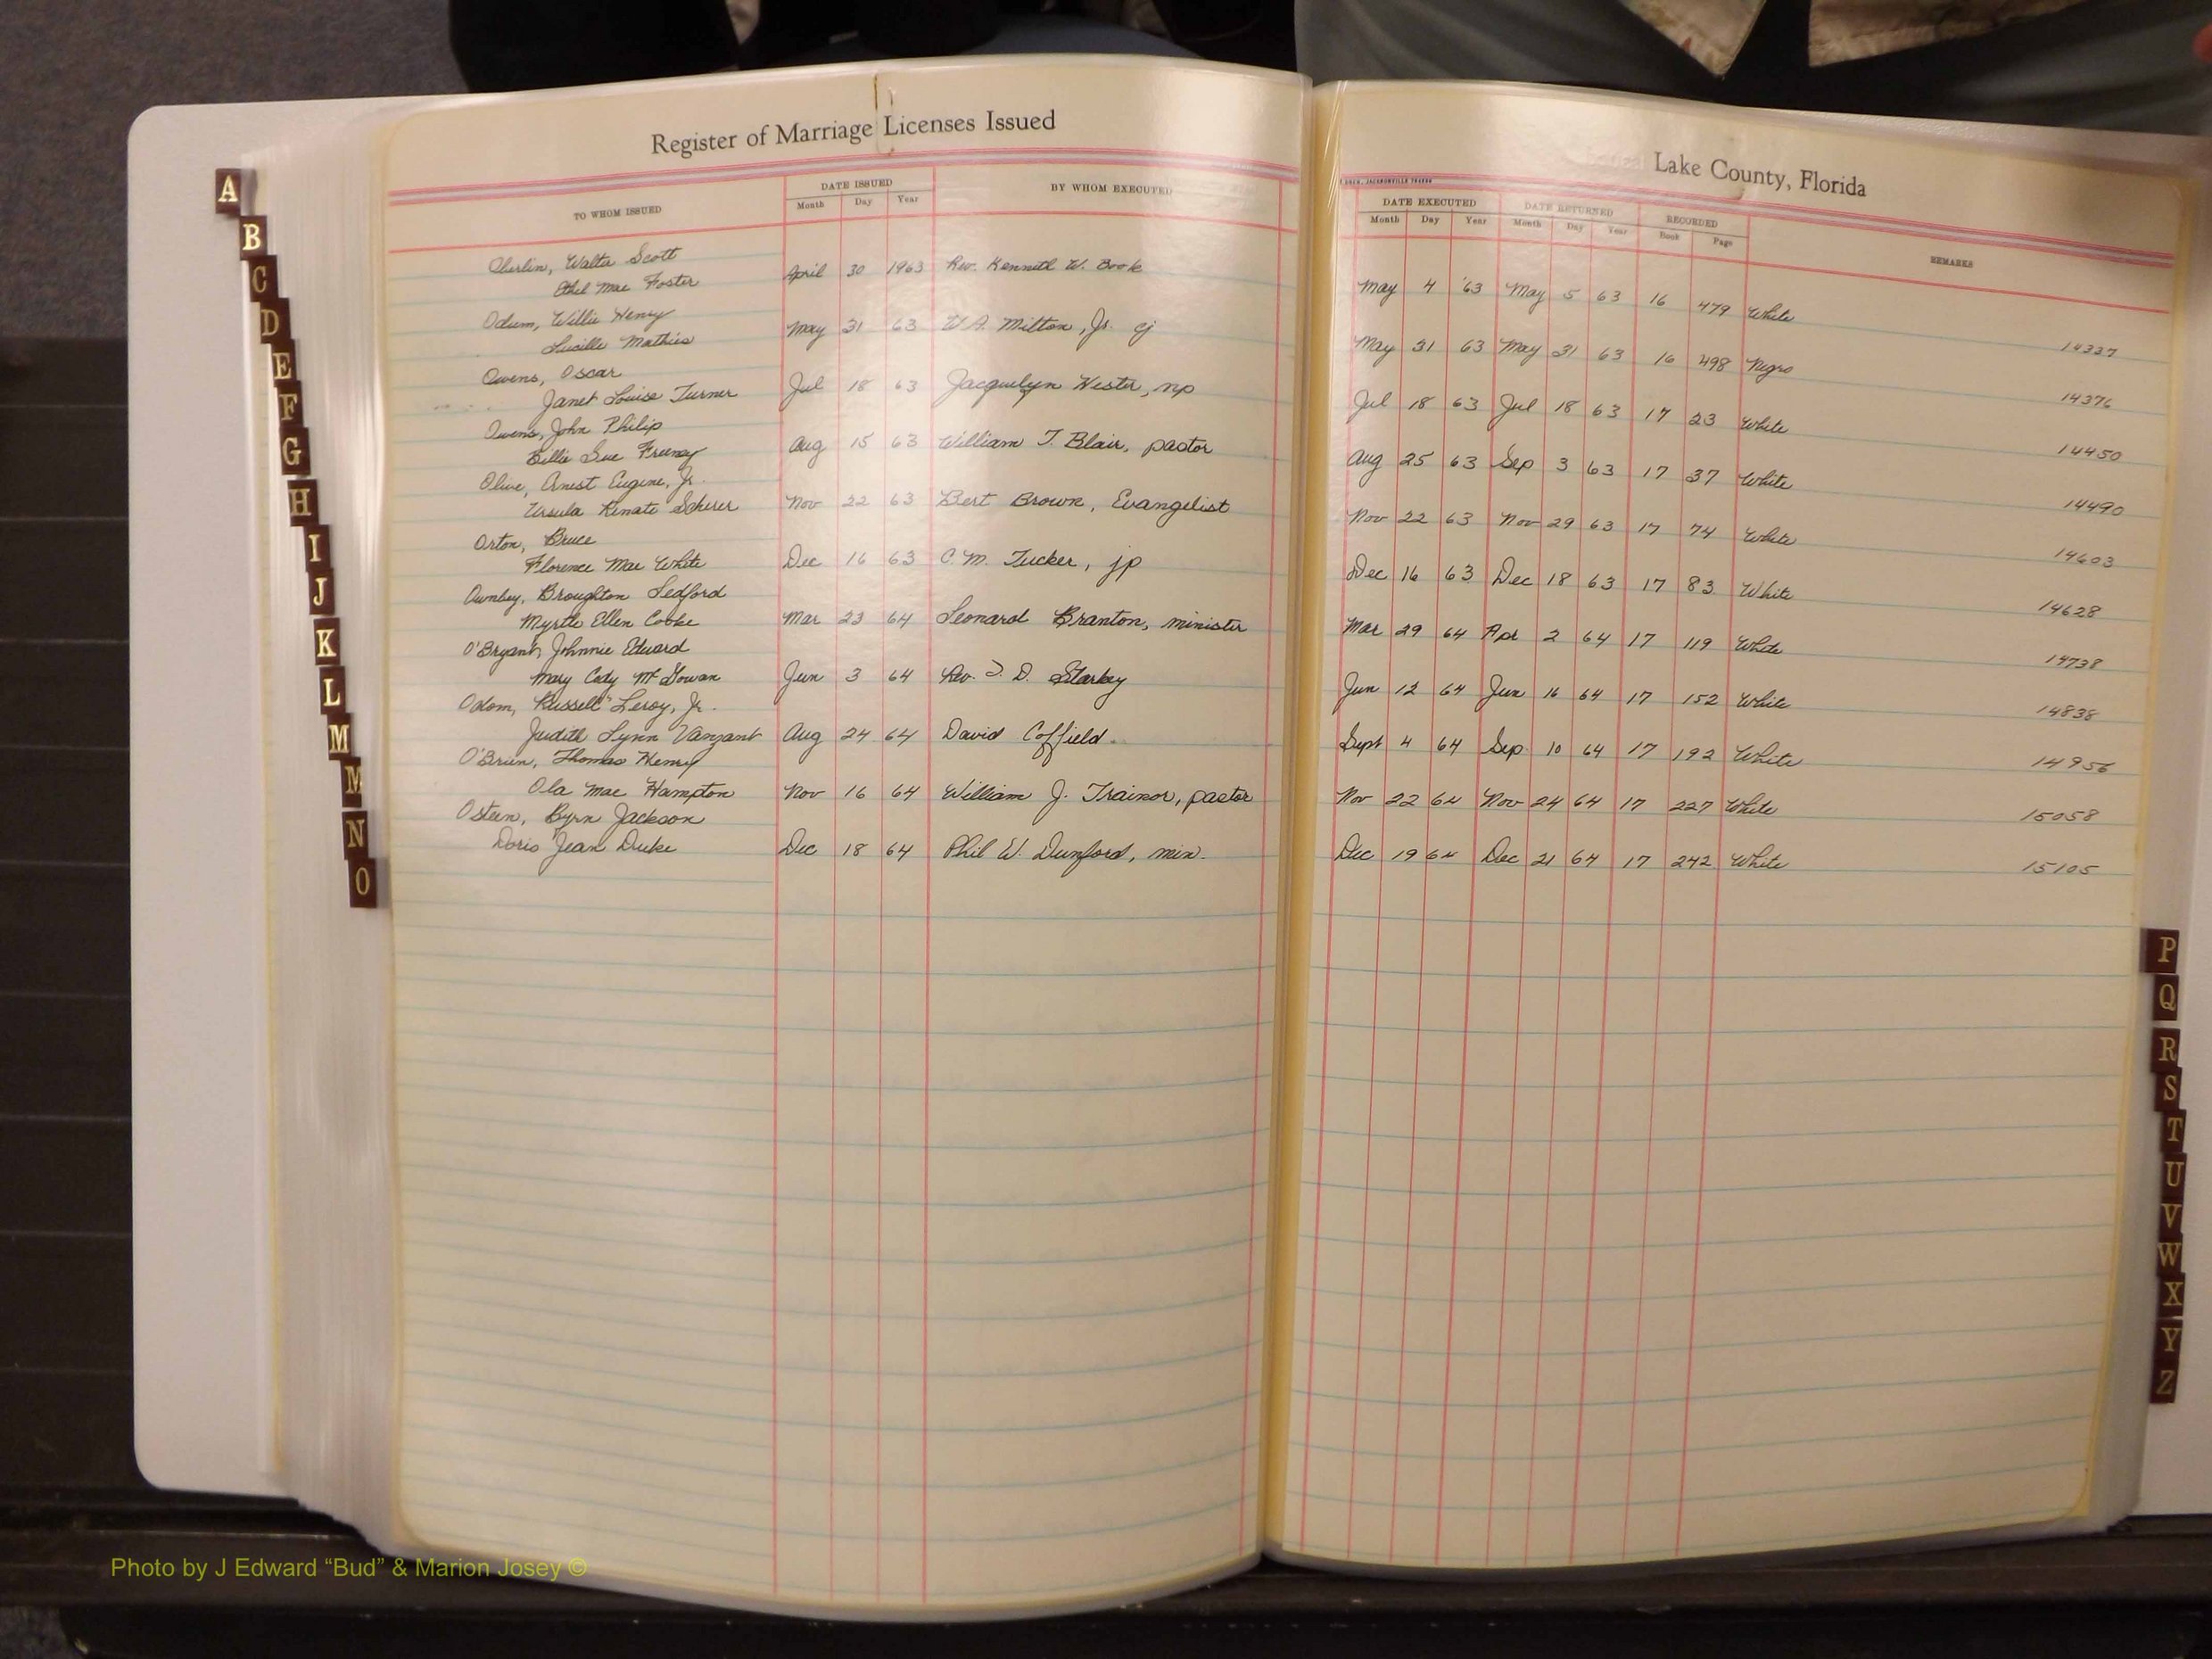 Register of Marriage Licenses Issued
Lake County, Florida
TO WHOM ISSUED
DATE ISSUED
Month Day Year
BY WHOM EXECUTED
DATE EXECUTED
Month Day Year
DATE RETURNED
Month Day Year
RECORDED
Book Page
REMARKS
Oberlin, Walter Scott
Ethel Mae Foster
April 30 1963 Rev. Kenneth W. Book May 4 '63 May 5 63 16 479 White 14337
Odum, Willie Henry
Lucille Mathis
May 31 63 W.A. Milton, Jr. cj May 31 63 May 31 63 16 498 Negro 14376
Owens, Oscar
Janet Louise Turner
Jul 18 63 Jacquelyn Hester, np Jul 18 63 Jul 18 63 17 23 White 14450
Owens, John Philip
Billie Sue Freeney
Aug 15 63 William T. Blair, pastor Aug 25 63 Sep 3 63 17 37 White 14490
Olive, Ernest Eugene, Jr.
Ursula Renate Scherer
Nov 22 63 Bert Brown, Evangelist Nov 22 63 Nov 29 63 17 74 White 14603
Orton, Bruce
Florence Mae White
Dec 16 63 C.M. Tucker, jp Dec 16 63 Dec 18 63 17 83 White 14628
Ownbey, Broughton Sedford
Myrtle Ellen Cooke
Mar 23 64 Leonard Branton, minister Mar 29 64 Apr 2 64 17 119 White 14738
O'Bryant, Johnnie Edward
Mary Cody McGowan
Jun 3 64 Rev. J. D. Starkey Jun 12 64 Jun 16 64 17 152 White 14838
Odom, Russell Leroy, Jr.
Judith Lynn Vanzant
Aug 24 64 David Coffield Sept 4 64 Sep 10 64 17 192 White 14956
O'Brien, Thomas Henry
Ola Mae Hampton
Nov 16 64 William J. Trainor, pastor Nov 22 64 Nov 24 64 17 227 White 15058
Osteen, Byrn Jackson
Doris Jean Duke
Dec 18 64 Phil W. Dunford, min. Dec 19 64 Dec 21 64 17 242 White 15105
A
B
C
D
E
F
G
H
I
J
K
L
M
M
N
O
P
Q
R
S
T
U
V
W
X
Y
Z
Photo by J Edward “Bud” & Marion Josey ©